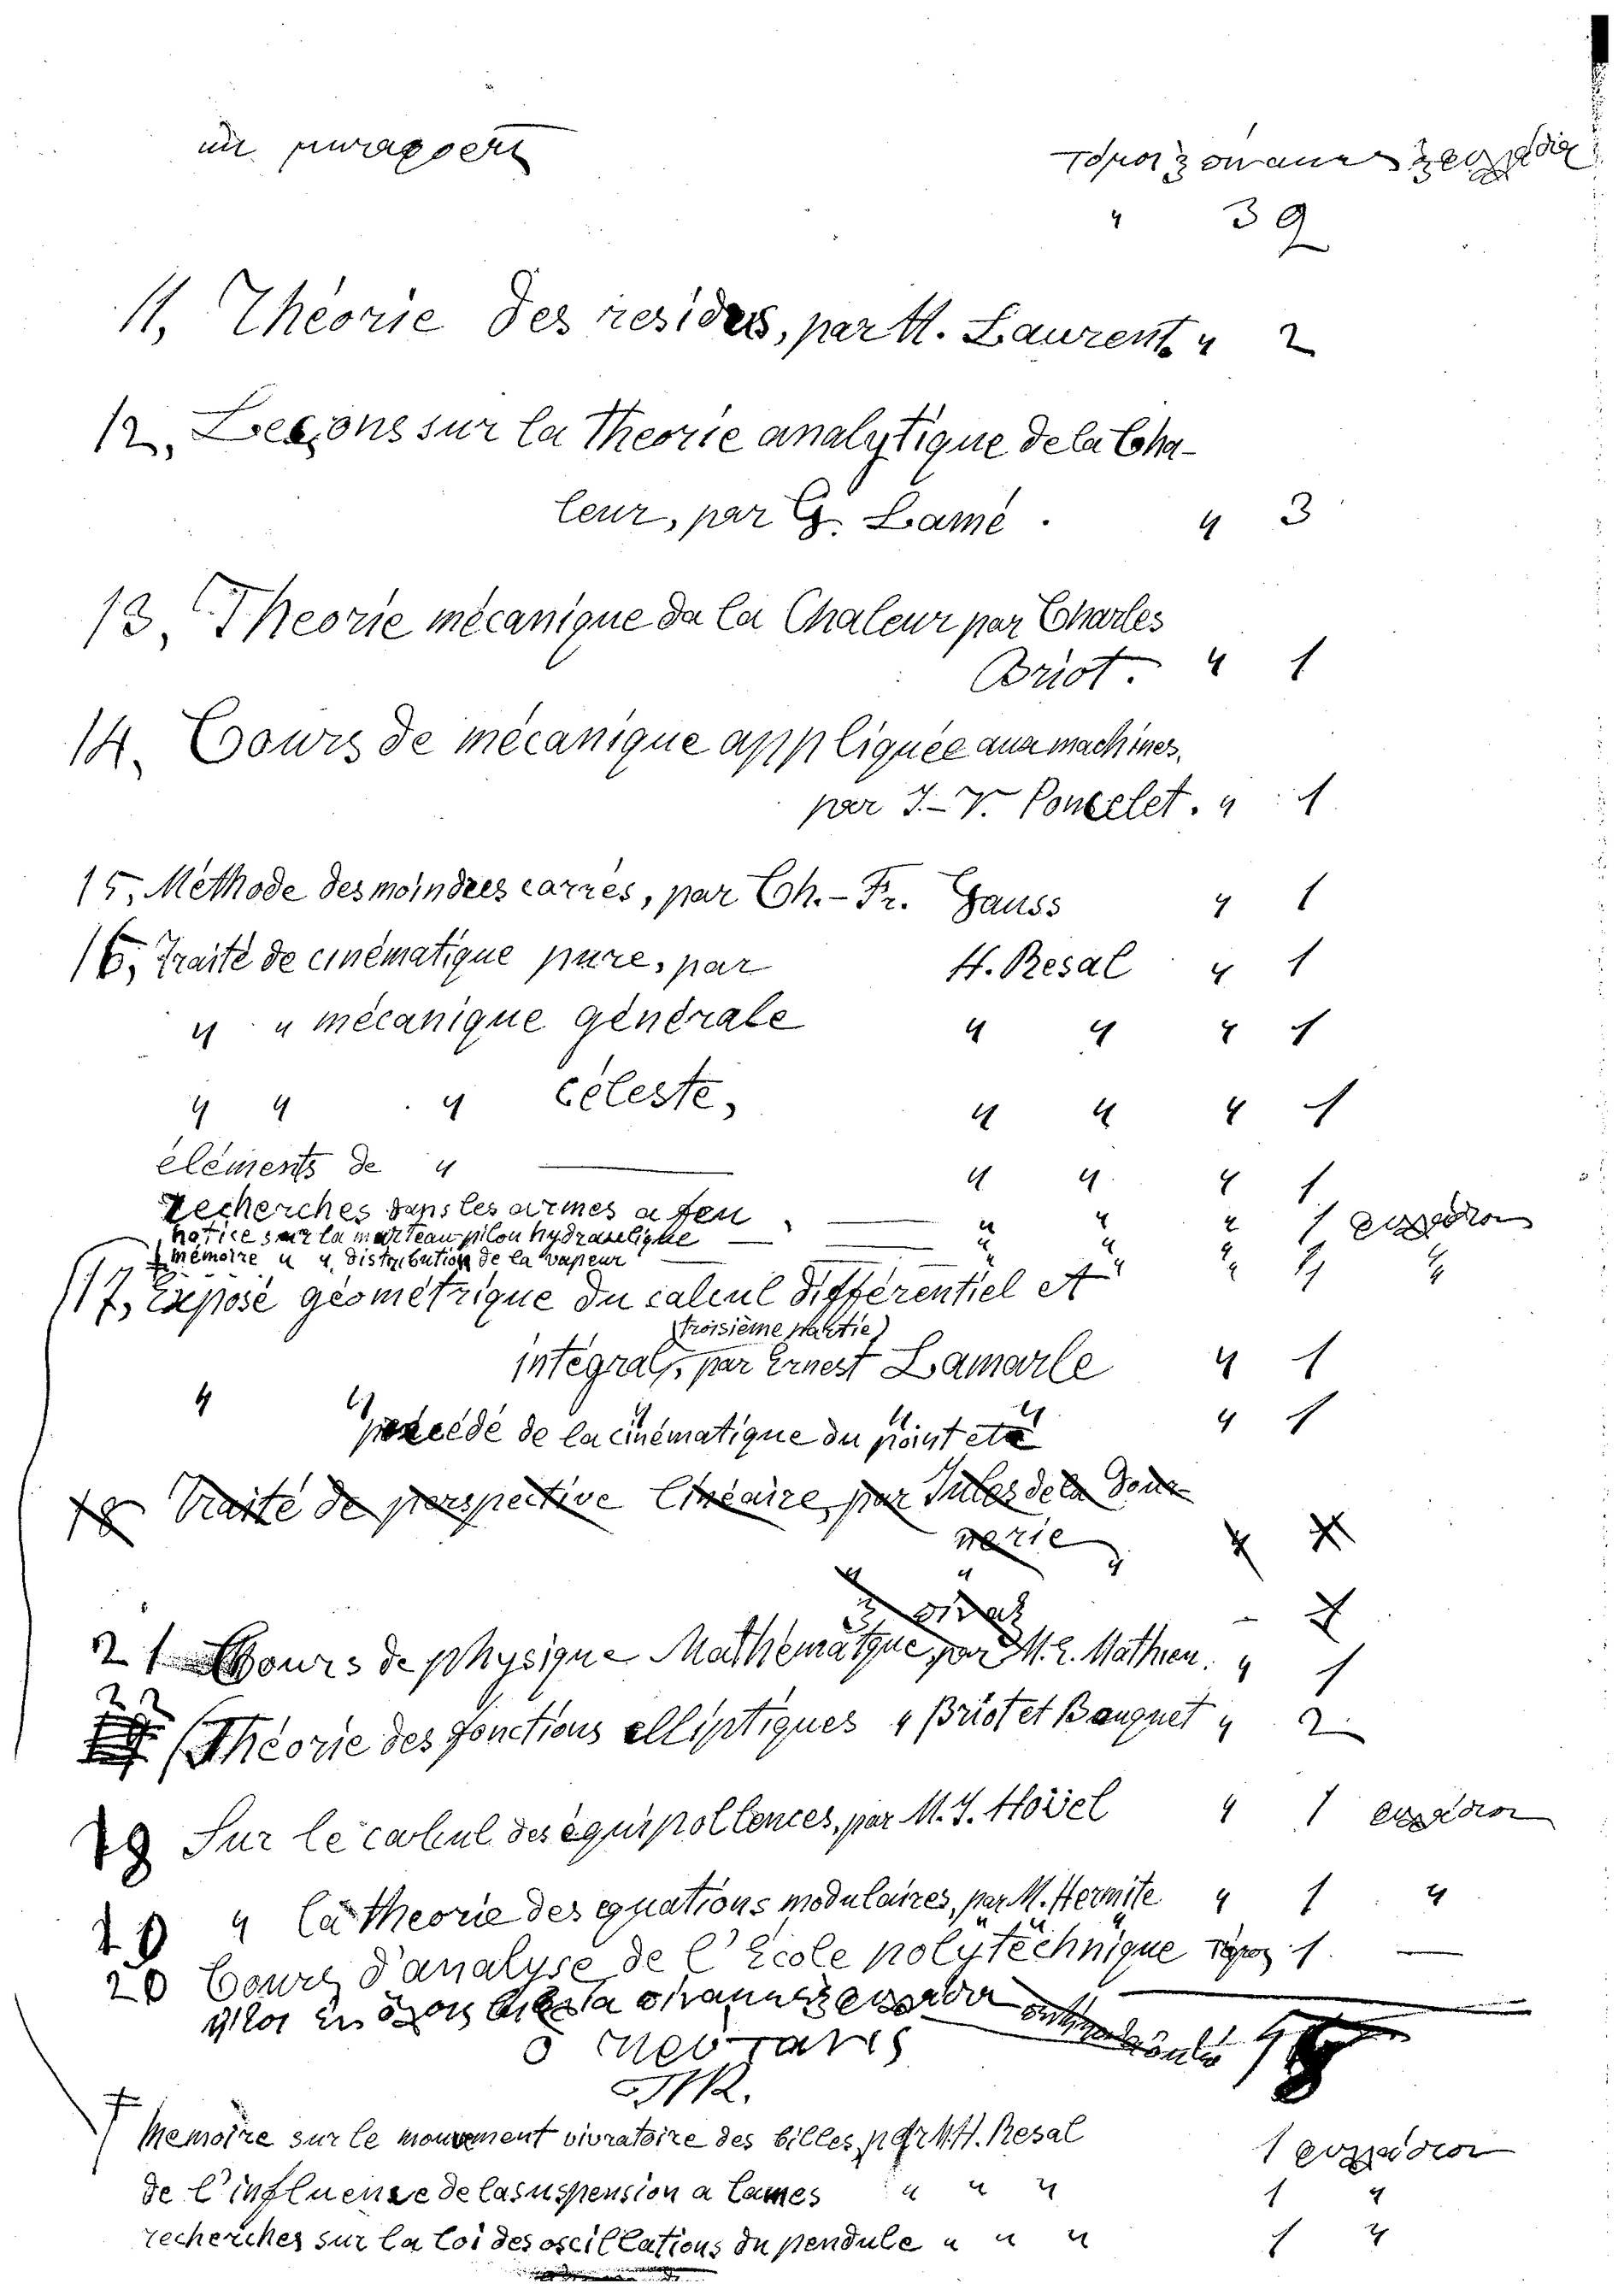 ἐκ μεταφορᾶς τόμοι
" 39
11, Théorie des resides, par H. Laurent. " 2
12, Leçons sur la Theorie analytique de la Cha-
leur, par G. Lamé. " 3
13, Theorie mécanique da la Chaleur par Charles
Briot. " 1
14, Cours de mécanique appliquée aux machines,
par J-V. Poncelet. " 1
15, Méthode des moindres carrés, par Ch.-Fr. Gauss " 1
16, Traité de cinématique pure, par H. Resal " 1
" " mécanique générale " " " 1
" " " céleste, " " " 1
éléments de " — " " " 1
recherches dans les armes a feu, — " " " 1
notice sur la marteau-pilon hydraulique — " " "
+ mémoire " " distribution de la vapeur — " " "
17, exposé géométrique du calcul différentiel et
(troisième partie)
intégral, par Ernest Lamarle " 1
" " " " "
procédé de la cinématique du point etc " 1
18 Traité de perspective linéaire, par Jules de la Gour-
nerie
21 Cours de physique Mathématque, par M. E. Mathieu. " 1
22 Théorie des fonctions elliptiques " Briot et Bouquet " 2
18 Sur le calcul des équipollences, par M. J. Hoüel " 1
19 " la theorie des equations modulaires, par M. Hermite " 1 "
20 Cours d'analyse de l'Ecole polytechnique τόμος 1. —
+ Memoire sur le mouvement vivratoire des billes, par M. H. Resal 1
de l'influence de la suspension a lames " " " 1 "
recherches sur la loi des oscillations du pendule " " " 1 "